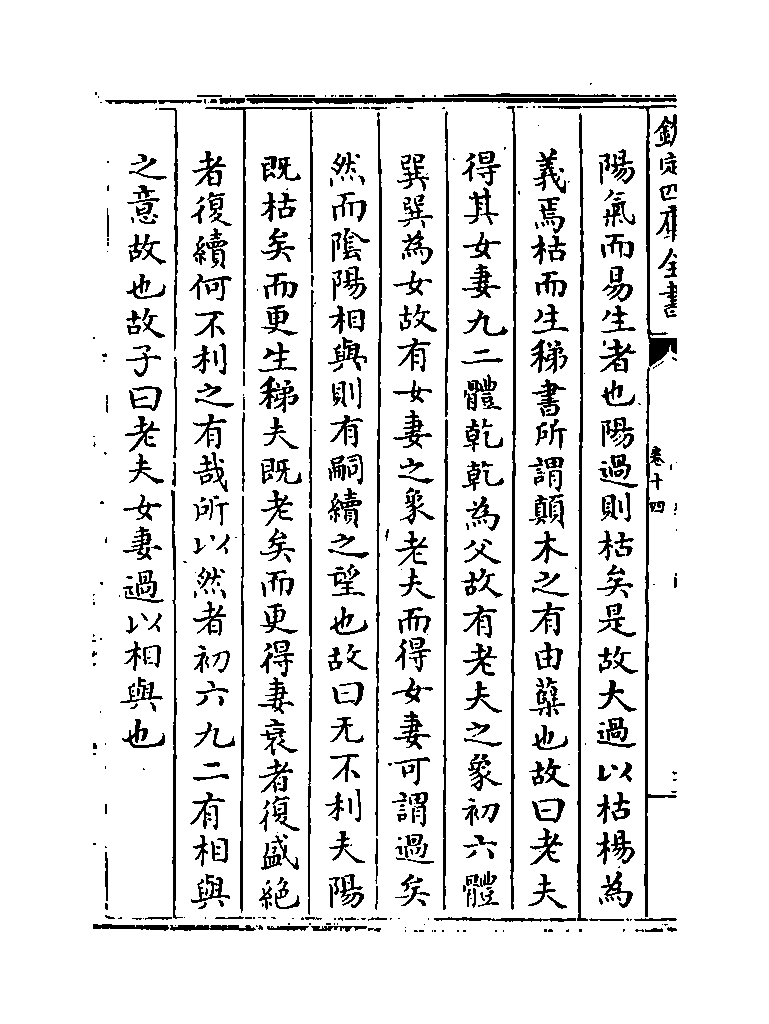 欽定四庫全書
卷十四
陽氣而易生者也陽過則枯矣是故大過以枯楊為
義焉枯而生稊書所謂顛木之有由蘖也故曰老夫
得其女妻九二體乾乾為父故有老夫之象初六體
巽巽為女故有女妻之象老夫而得女妻可謂過矣
然而陰陽相與則有嗣續之望也故曰无不利夫陽
既枯矣而更生稊夫既老矣而更得妻衰者復盛絶
者復續何不利之有哉所以然者初六九二有相與
之意故也故子曰老夫女妻過以相與也